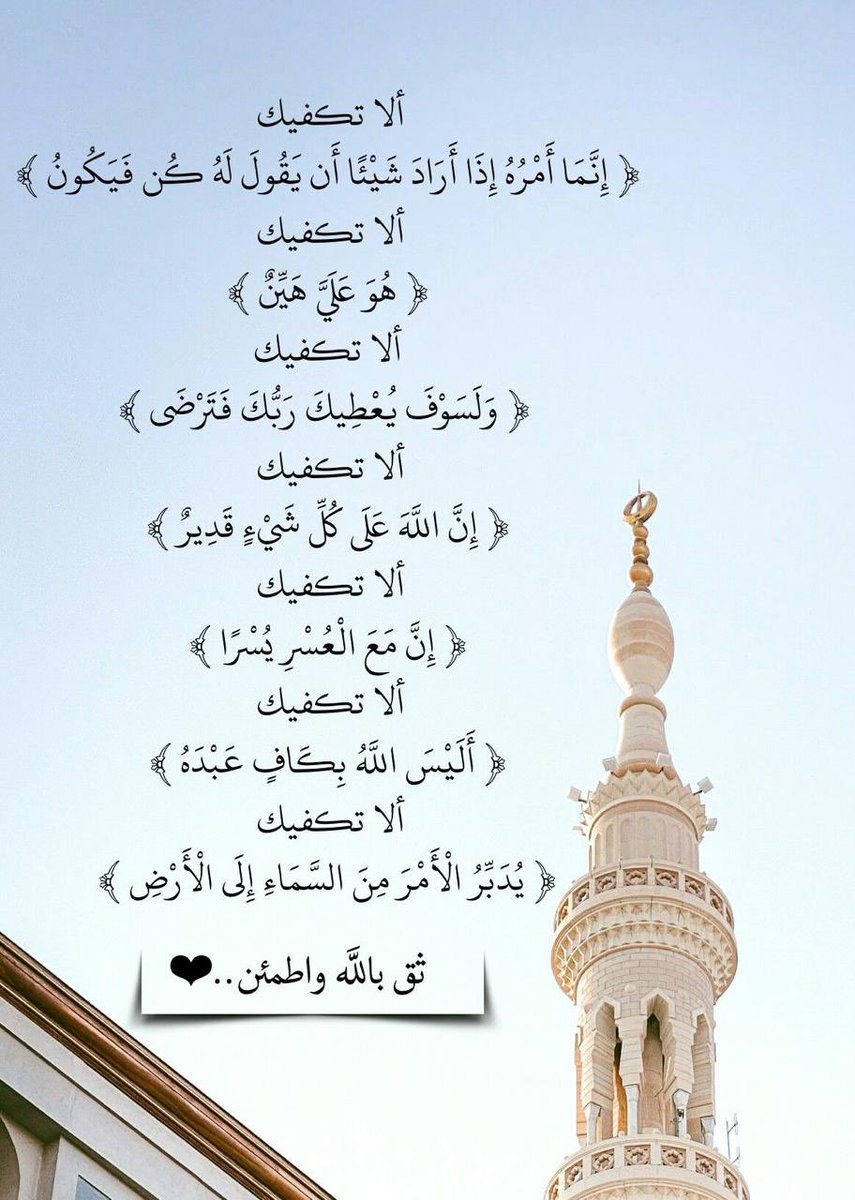 ألا تكفيك
﴿ إِنَّمَا أَمْرُهُ إِذَا أَرَادَ شَيْئًا أَن يَقُولَ لَهُ كُن فَيَكُونُ ﴾
ألا تكفيك
﴿ هُوَ عَلَيَّ هَيِّنٌ ﴾
ألا تكفيك
﴿ وَلَسَوْفَ يُعْطِيكَ رَبُّكَ فَتَرْضَى ﴾
ألا تكفيك
﴿ إِنَّ اللَّهَ عَلَى كُلِّ شَيْءٍ قَدِيرٌ ﴾
ألا تكفيك
﴿ إِنَّ مَعَ الْعُسْرِ يُسْرًا ﴾
ألا تكفيك
﴿ أَلَيْسَ اللَّهُ بِكَافٍ عَبْدَهُ ﴾
ألا تكفيك
﴿ يُدَبِّرُ الْأَمْرَ مِنَ السَّمَاءِ إِلَى الْأَرْضِ ﴾
ثق باللَّه واطمئن..❤